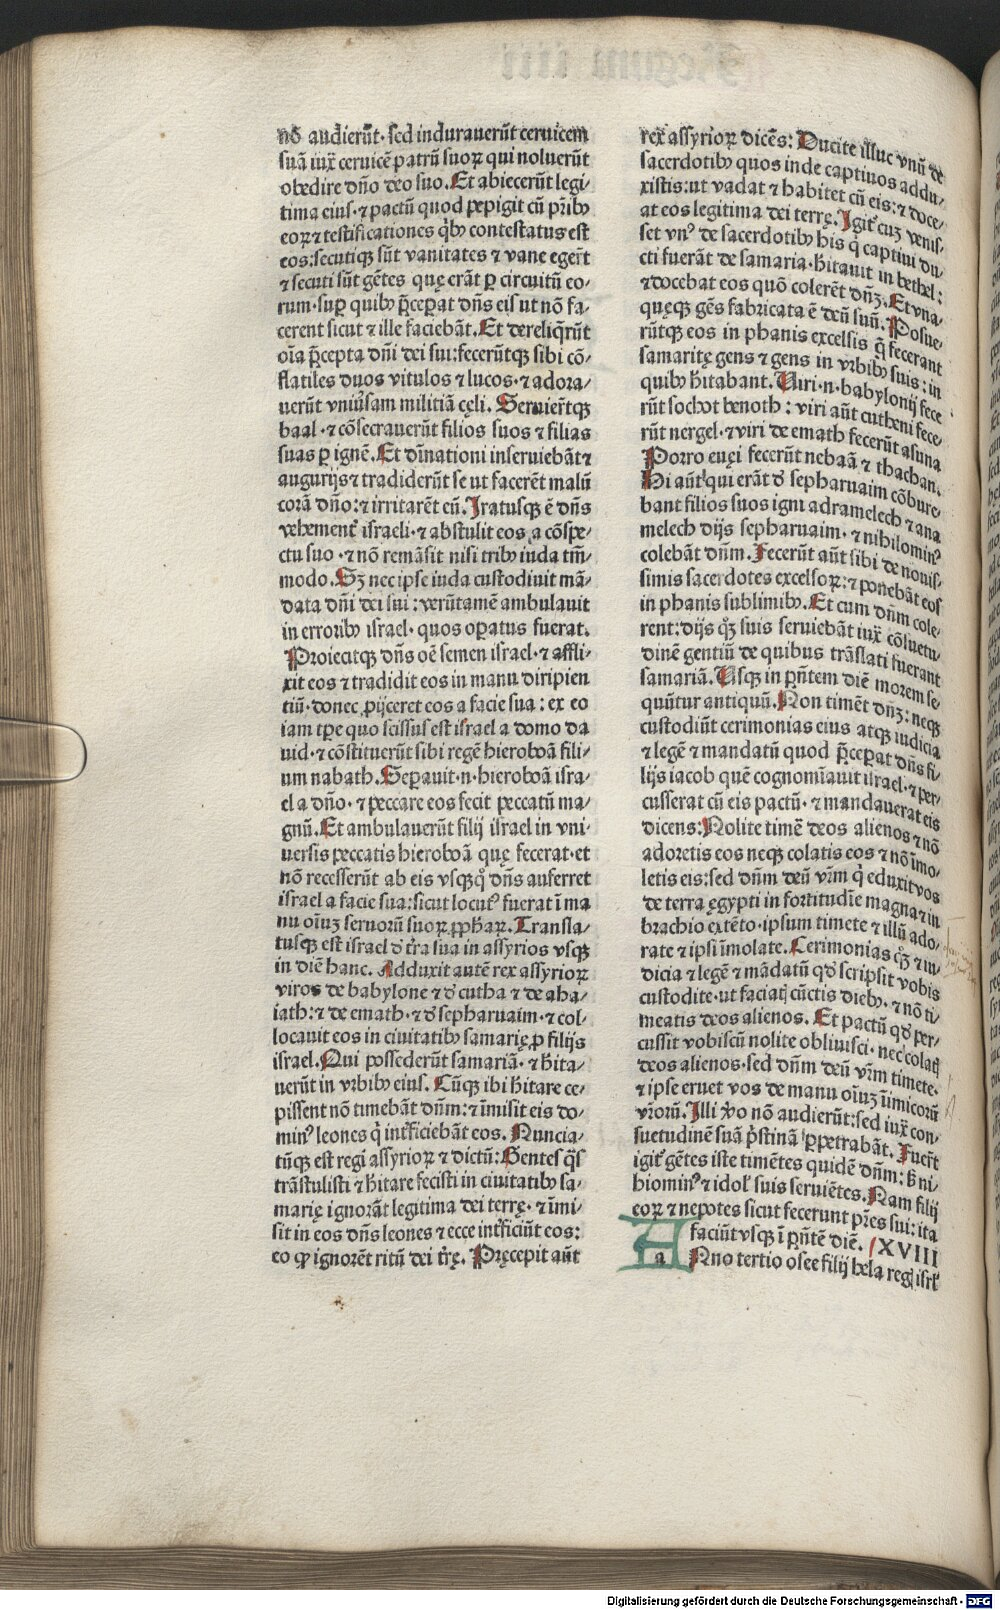 nõ audierũt· sed indurauerũt ceruicem
suã iuxͣ ceruicẽ patrũ suoꝝ qui noluerũt
obedire dño deo suo. Et abiecerũt legi-
tima eius· ⁊ pactũ quod pepigit cũ pr̃ibꝫ
eoꝝ ⁊ testificationes q̇bꝫ contestatus est
eos: secutiqꝫ sũt vanitates ⁊ vane eger̃t
⁊ secuti sũt gẽtes quę erãt ꝑ circuitũ eo-
rum· suꝑ quibꝫ p̃ceꝑat dñs eis ut nõ fa-
cerent sicut ⁊ ille faciebãt. Et dereliq̇rũt
oĩa p̃cepta dñi dei sui: fecerũtqꝫ sibi cõ-
flatiles duos vitulos ⁊ lucos· ⁊ adora-
uerũt vniũsam militiã cęli. Seruier̃tqꝫ
baal· ⁊ cõsecrauerũt filios suos ⁊ filias
suas ꝑ ignẽ. Et diuĩnationi inseruiebãt ⁊
augurijs ⁊ tradiderũt se ut facerẽt malũ
corã dño: ⁊ irritarẽt eũ. Iratusqꝫ ẽ dñs
vehement̃ israeli· ⁊ abstulit eos a cõspe-
ctu suo· ⁊ nõ remãsit nisi tribꝫ iuda tm̃-
modo. Sꝫ nec ipse iuda custodiuit mã-
data dñi dei sui: verũtamẽ ambulauit
in erroribꝫ israel· quos oꝑatus fuerat.
Proiecitqꝫ dñs oẽ semen israel· ⁊ affli-
xit eos ⁊ tradidit eos in manu diripien
tiũ· donec ꝓijceret eos a facie sua: ex eo
iam tꝑe quo scissus est israel a domo da
uid· ⁊ cõstituerũt sibi regẽ hieroboã fili-
um nabath. Seꝑauit·n·hieroboã isra-
el a dño· ⁊ peccare eos fecit peccatũ ma-
gnũ. Et ambulauerũt filij israel in vni-
uersis peccatis hieroboã quę fecerat· et
nõ recesserũt ab eis vsqꝫ q̊ dñs auferret
israel a facie sua: sicut locutꝰ fuerat ĩ ma
nu oĩuꝫ seruorũ suoꝝ ꝓphaꝝ. Transla-
tusqꝫ est israel d̓ tr̃a sua in assyrios vsqꝫ
in diẽ hanc. Adduxit autẽ rex assyrioꝝ
viros de babylone ⁊ d̓ cutha ⁊ de aha-
iath: ⁊ de emath· ⁊ d̓ sepharuaim· ⁊ col-
locauit eos in ciuitatibꝫ samarię ꝓ filijs
israel. Qui possederũt samariã· ⁊ h̃ita-
uerũt in vrbibꝫ eius. Cũqꝫ ibi h̃itare ce-
pissent nõ timebãt dñm: ⁊ ĩmisit eis do-
minꝰ leones q̇ int̃ficiebãt eos. Nuncia-
tũqꝫ est regi assyrioꝝ ⁊ dictũ: Gentes q̃s
trãstulisti ⁊ h̃itare fecisti in ciuitatibꝫ sa-
marię ignorãt legitima dei terrę· ⁊ ĩmi-
sit in eos dñs leones ⁊ ecce int̃ficiũt eos:
eo ꝙ ignorẽt ritũ dei tr̃ę. Pręcepit aũt
rex assyrioꝝ dicẽs: Ducite illuc vnũ de
sacerdotibꝫ quos inde captiuos addu-
xistis: ut vadat ⁊ habitet cũ eis: ⁊ doce-
at eos legitima dei terrę. Igit̃ cuꝫ venis-
set vnꝰ de sacerdotibꝫ his q̇ captiui du-
cti fuerãt de samaria· h̃itauit in bethel:
⁊ docebat eos quõ colerẽt dñꝫ. Et vna-
quęqꝫ gẽs fabricata ẽ deũ suũ. Posue-
rũtqꝫ eos in phanis excelsis q̃ fecerant
samaritę gens ⁊ gens in vrbibꝫ suis: in
quibꝫ h̃itabant. Viri·n·babylonij fece
rũt sochot benoth: viri aũt cutheni fece-
rũt nergel· ⁊ viri de emath fecerũt asuna
Porro euęi fecerũt nebaã ⁊ thachan.
Hi aũt qui erãt d̓ sepharuaim cõbure-
bant filios suos igni adramelech ⁊ ana
melech dijs sepharuaim· ⁊ nihilominꝰ
colebãt dñm. Fecerũt aũt sibi de nouis-
simis sacerdotes excelsoꝝ: ⁊ ponebãt eos
in phanis sublimibꝫ. Et cum dñm cole-
rent: dijs q̊ꝫ suis seruiebãt iuxͣ cõsuetu-
dinẽ gentiũ de quibus trãslati fuerant
samariã. Vsqꝫ in p̃ñtem diẽ morem se-
quũtur antiquũ. Non timẽt dñꝫ: neqꝫ
custodiũt cerimonias eius atqꝫ iudicia
⁊ legẽ ⁊ mandatũ quod p̃ceꝑat dñs fi-
lijs iacob quẽ cognomĩauit israel· ⁊ per-
cusserat cũ eis pactũ· ⁊ mandauerat eis
dicens: Nolite timẽ deos alienos ⁊ nõ
adoretis eos neqꝫ colatis eos ⁊ nõ ĩmo-
letis eis: sed dñm deũ vr̃m q̇ eduxit vos
de terra ęgypti in fortitudĩe magna ⁊ in
brachio extẽto· ipsum timete ⁊ illũ ado-
rate ⁊ ipsi ĩmolate. Cerimonias q̊ꝫ ⁊ iu-
dicia ⁊ legẽ ⁊ mãdatũ qd̓ scripsit vobis
custodite· ut faciatꝭ cũctis diebꝫ· ⁊ nõ ti-
meatis deos alienos. Et pactũ qd̓ per-
cussit vobiscũ nolite obliuisci· nec colatꝭ
deos alienos· sed dñm deũ vr̃m timete·
⁊ ipse eruet vos de manu oĩuꝫ ĩimicorũ
vr̃orũ. Illi ỹo nõ audierũt: sed iuxͣ con-
suetudinẽ suã p̃stinã ꝑpetrabãt. Fuer̃t
igit̃ gẽtes iste timẽtes quidẽ dñm: s̃ ni-
hiominꝰ ⁊ idol̓ suis seruiẽtes. Nam filij
eoꝝ ⁊ nepotes sicut fecerunt pr̃es sui: ita
faciũt vsqꝫ ĩ p̃ñtẽ diẽ. XVIII
ANno tertio osee filij hela regꝭ isrl̓
Digitalisierung gefördert durch die Deutsche Forschungsgemeinschaft - DFG